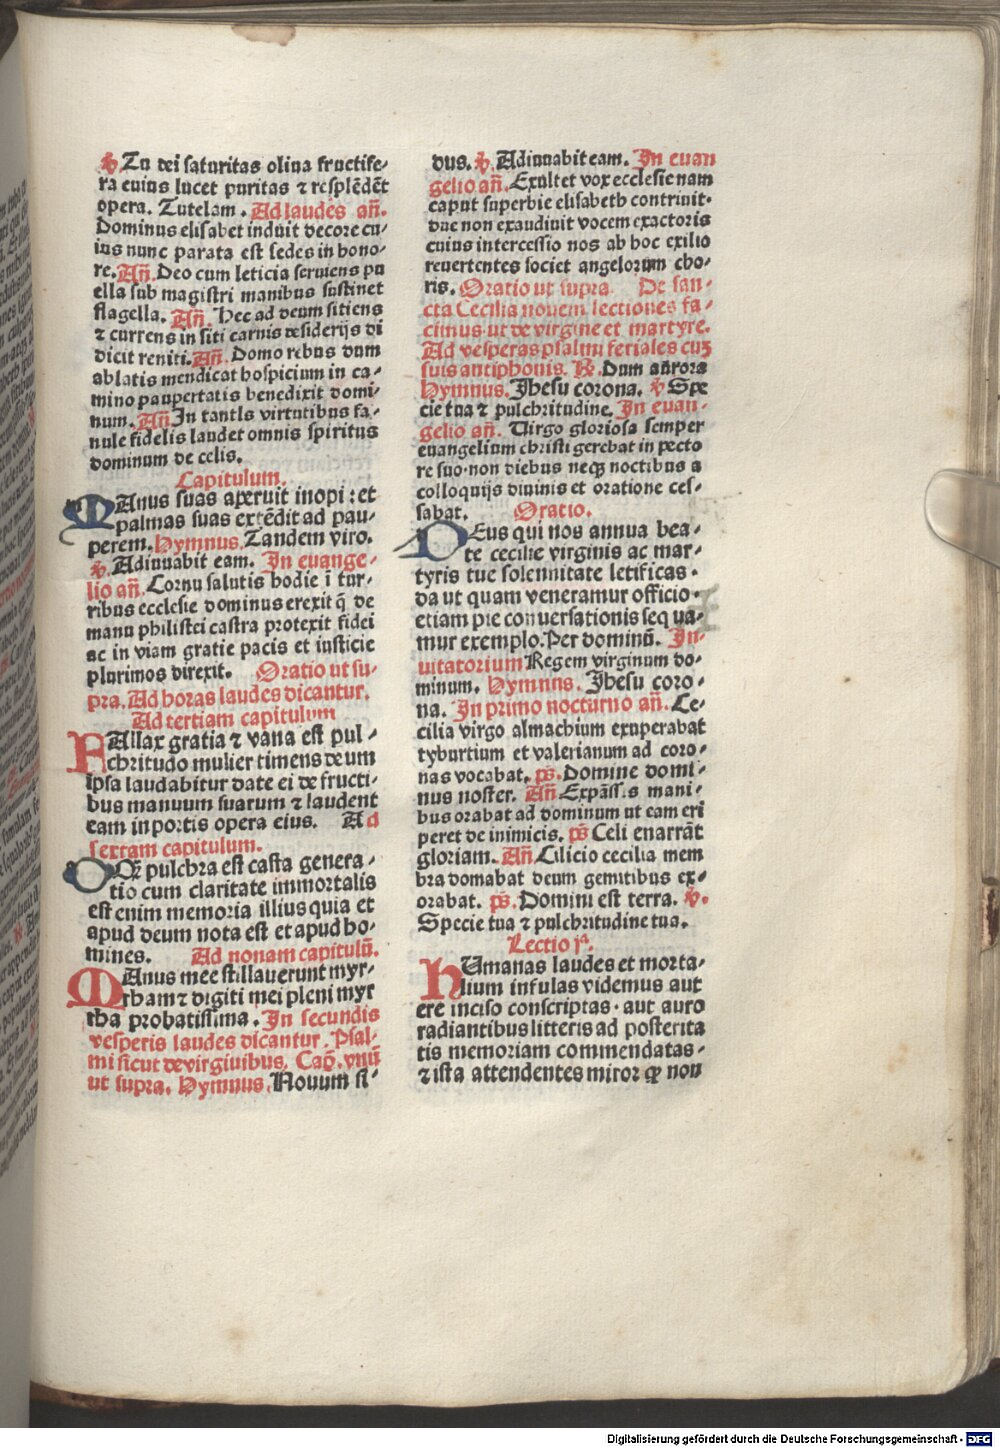 ℣. Tu dei saturitas oliua fructife-
ra cuius lucet puritas ⁊ resplēdēt
opera. Tutelam. Ad laudes añ.
Dominus elisabet induit decore cu-
ius nunc parata est sedes in hono-
re. Añ. Deo cum leticia seruiens pu
ella sub magistri manibus sustinet
flagella. Añ. Hec ad deum sitiens
⁊ currens in siti carnis desiderijs di
dicit reniti. Añ. Domo rebus dum
ablatis mendicat hospicium in ca-
mino paupertatis benedixit domi-
num. Añ. In tantis virtutibus fa-
nule fidelis laudet omnis spiritus
dominum de celis.
Capitulum.
MAnus suas aperuit inopi: et
palmas suas extēdit ad pau-
perem. Hymnus. Tandem viro.
℣. Adiuuabit eam. In euange-
lio añ. Cornu salutis hodie ī tur-
ribus ecclesie dominus erexit q̄ de
manu philistei castra protexit fidei
ac in viam gratie pacis et iusticie
plurimos direxit. Oratio ut su-
pra. Ad horas laudes dicantur.
Ad tertiam capitulum
FAllax gratia ⁊ vana est pul-
chritudo mulier timens deum
ipsa laudabitur date ei de fructi-
bus manuum suarum ⁊ laudent
eam in portis opera eius. Ad
sextam capitulum.
OQꝫ pulchra est casta genera-
tio cum claritate immortalis
est enim memoria illius quia et
apud deum nota est et apud ho-
mines. Ad nonam capitulū.
MAnus mee stillauerunt myr-
rham ⁊ digiti mei pleni myr
rha probatissima. In secundis
vesperis laudes dicantur. Psal-
mi sicut de virginibus. Cap. vnū
ut supra. Hymnus. Nouum si-
dus. ℣. Adiuuabit eam. In euan
gelio añ. Exultet vox ecclesie nam
caput superbie elisabeth contriuit.
duc non exaudiuit vocem exactoris
cuius intercessio nos ab hoc exilio
reuertentes societ angelorum cho-
ris. Oratio ut supra. De san-
cta Cecilia nouem lectiones fa-
cimus ut de virgine et martyre.
Ad vesperas psalmi feriales cuꝫ
suis antiphonis. ℟. Dum aurora
Hymnus. Jhesu corona. ℣. Spe
cie tua ⁊ pulchritudine. In euan-
gelio añ. Virgo gloriosa semper
euangelium christi gerebat in pecto
re suo·non diebus neqꝫ noctibus a
colloquijs diuinis et oratione ces-
sabat. Oratio.
DEus qui nos annua bea-
te cecilie virginis ac mar-
tyris tue solennitate letificas·
da ut quam veneramur officio·
etiam pie conuersationis seq ua-
mur exemplo. Per dominū. In-
uitatorium Regem virginum do-
minum. Hymnus. Jhesu coro-
na. In primo nocturno añ. Ce-
cilia virgo almachium exuperabat
tyburtium et valerianum ad coro-
nas vocabat. ps. Domine domi-
nus noster. Añ. Expāssis mani-
bus orabat ad dominum ut eam eri
peret de inimicis. ps Celi enarrāt
gloriam. Añ. Cilicio cecilia mem
bra domabat deum gemitibus ex-
orabat. ps. Domini est terra. ℣.
Specie tua ⁊ pulchritudine tua.
Lectio jª.
HUmanas laudes et morta-
lium infulas videmus aut
ere inciso conscriptas· aut auro
radiantibus litteris ad posterita
tis memoriam commendatas-
⁊ ista attendentes miror ꝙ non
Digitalisierung gefördert durch die Deutsche Forschungsgemeinschaft - DFG